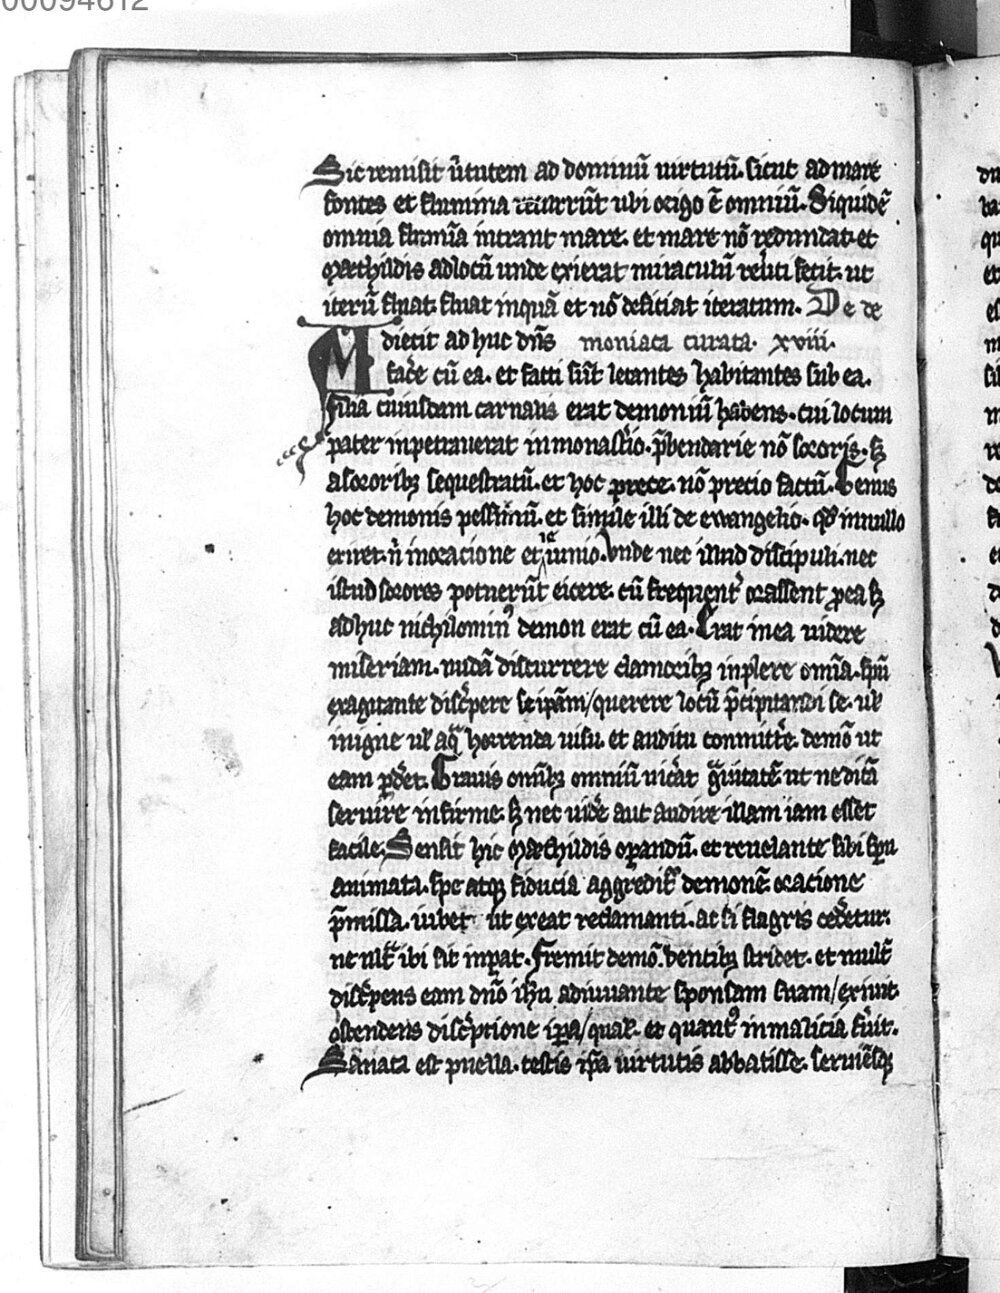 00094612
Sic remisit ũtutem ad dominũ uirtutũ. sicut ad mare
fontes et flumina reuerrũt ubi origo ẽ omniũ. Siquidẽ
omnia flumĩa intrant mare. et mare nõ redundat. et
Mæthildis ad locũ unde exierat miraculũ relicti fecit. ut
iterũ fluat. fluat inquã et nõ deficiat iteratum. De de
diecit ad huc dñs moniaca curata. xviii.
facẽ cũ ea. et facti sũt letantes habitantes sub ea.
filia cuiusdam carnalis erat demoniũ habens. cui locum
pater inpetrauerat in monastio. p̃bendarie nõ sororis. ꝫ
a sororibꝫ sequestratũ. et hoc prece. nõ precio factũ. Genus
hoc demonis pessimũ. et simile illi de ewangelio. qđ in nullo
eriret. ñ in oracione et ieiunio. Vnde nec illud discipuli. nec
istud sorores potuerũt eicere. cũ frequent᷑ orassent ꝓ ea ꝫ
ad huc nichilomin⁹ demon erat cũ ea. Erat in ea uidere
miseriam. nudã discurrere clamoribꝫ inplere omĩa. spũ
exagitante disc̃pere se ipãm/querere locũ p̃cipitandi se. uł
in igne uł aq̃ horrenda uisu. et auditu conmitt̃e. demõ ut
eam ꝑdẽt. Grauis omĩbꝫ omniũ uic̃at g̃uitatẽ. ut ne dicã
seruire infirme. ꝫ nec uidẽ aut audire illam iam esset
facile. Sensit hic Mæthildis oꝑandũ. et reuelante sibi spũ
animata. spe atqꝫ fiducia aggredit᷑ demonẽ. oracione
p̃missa. iubet ut exeat reclamanti. ac si flagris cedẽtur.
ne ult᷑ ibi sit inpat. Fremit demõ. dentibꝫ stridet. et mult᷑
disc̃pens eam dño ihũ adiuuante sponsam suam/exiuit
ostendens disc̃ptione ipa/qual. et quant⁹ in malicia fũit.
Sanata est puella. testis ipa uirtutis abbatisse. seruiẽsqꝫ